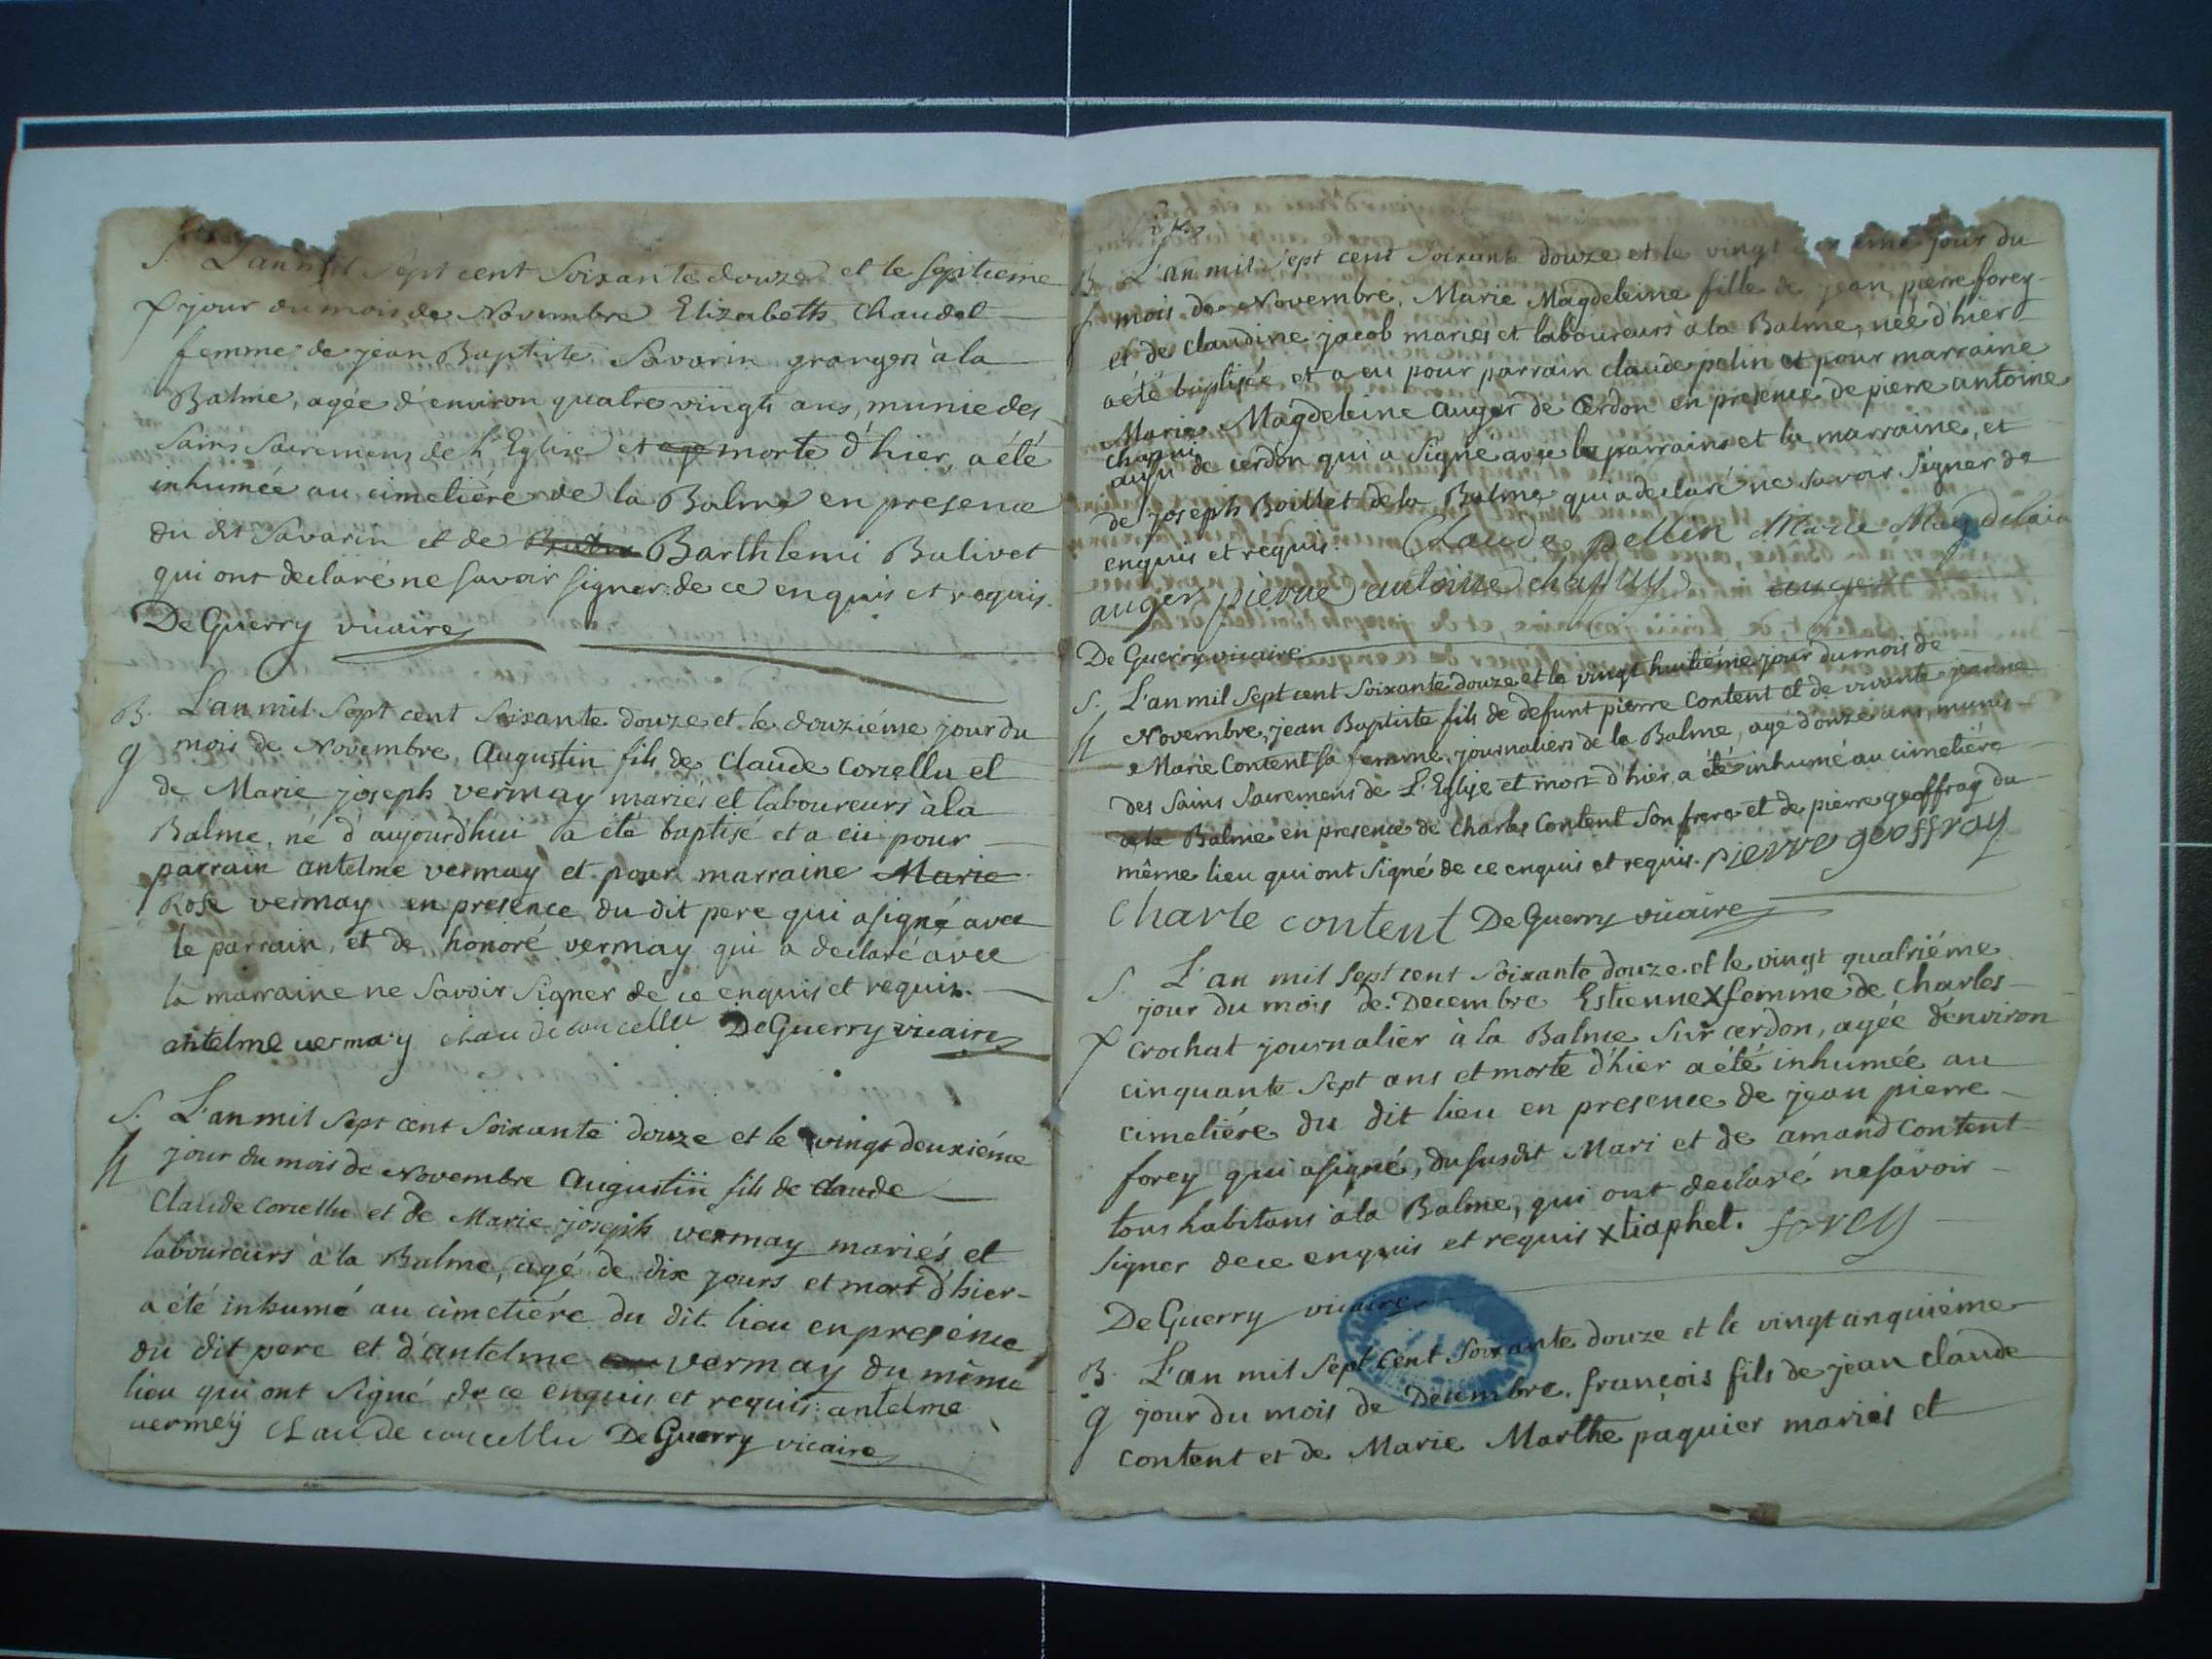 S. L'an mil sept cent soixante douze et le septieme
f jour du mois de Novembre Elizabeth Chaudel
femme de jean Baptiste Savarin grangers à la
Balme, agée d'environ quatre vingts ans, munie des
sains sacremens de l'Eglise et morte d'hier, a été
inhumée au cimetiére de la Balme en presence
du dit Savarin et de Barthlemi Balivet
qui ont declaré ne savoir signer de ce enquis et requis.
De Guerry vicaire
B. L'an mil sept cent soixante douze et le douziéme jour du
g mois de Novembre, Augustin fils de Claude Corcellu et
de Marie joseph vermay mariés et laboureurs à la
Balme, né d'aujourd'hui a été baptisé et a eu pour
parrain antelme vermay et pour marraine Marie
Rose vermay en presence du dit pere qui a signé avec
le parrain, et de honoré vermay qui a declaré avec
la marraine ne savoir signer de ce enquis et requis.
antelme vermay claude corcellu De Guerry vicaire
S. L'an mil sept cent soixante douze et le vingt deuxiéme
jour du mois de Novembre Augustin fils de claude
Claude Corcellu et de Marie joseph vermay mariés et
laboureurs à la Balme, agé de dix jours et mort d'hier
a été inhumé au cimetiére du dit lieu en presence
du dit pere et d'antelme vermay du même
lieu qui ont signé de ce enquis et requis. antelme
vermey claude corcellu De Guerry vicaire
B. L'an mil sept cent soixante douze et le vingt jour du
f mois de Novembre, Marie Magdeleine fille de jean pierre forey
et de claudine jacob mariés et laboureurs à la Balme, née d'hier
a été baptisée et a eu pour parrain claude pelin et pour marraine
Marie Magdeleine Auger de Cerdon en presence de pierre antoine
chapui
aussi de cerdon qui a signé avec le parrain et la marraine, et
de joseph Boillet de la Balme qui a declaré ne savoir signer de
enquis et requis. Claude pellin Marie Magdelain
auger pierre antoine chapuy auger
De Guerry vicaire
S. L'an mil sept cent soixante douze et le vingt huitiéme jour du mois de
Novembre, jean Baptiste fils de defunt pierre Content et de vivante jeanne
Marie Content sa femme, journaliers de la Balme, agé d'onze ans, munis
des sains sacremens de L'Eglise et mort d'hier, a été inhumé au cimetiére
de la Balme en presence de Charles Content son frere et de pierre geoffray du
même lieu qui ont signé de ce enquis et requis. pierre geoffray
Charle content De Guerry vicaire
S. L'an mil sept cent soixante douze et le vingt quatriéme
jour du mois de Decembre Estienne X femme de Charles
f Crochat journalier à la Balme sur cerdon, agée d'environ
cinquante sept ans et morte d'hier a été inhumée au
cimetiére du dit lieu en presence de jean pierre
forey qui a signé, du susdit Mari et de amand Content
tous habitans à la Balme, qui ont declaré ne savoir
signer de ce enquis et requis X tiaphet. forey
De Guerry vicaire
B. L'an mil sept cent soixante douze et le vingt cinquiéme
g jour du mois de Decembre, françois fils de jean claude
Content et de Marie Marthe paquier mariés et